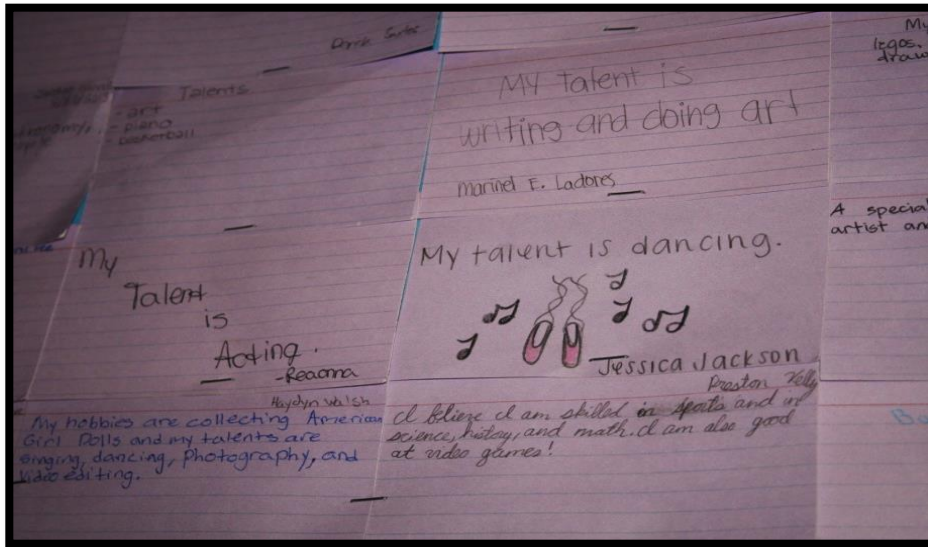 My
legos.
draw
Talents
- art
- piano
- basketball
My talent is
writing and doing art
Marinel E. Ladores
A special
artist an
My
Talent
is
Acting.
-Reaonna
My talent is dancing.
Jessica Jackson
Haydyn Walsh
My hobbies are collecting American
Girl Dolls and my talents are
singing, dancing, photography, and
video editing.
Preston Kelly
I blieve I am skilled in sports and in
science, history, and math. I am also good
at video games!